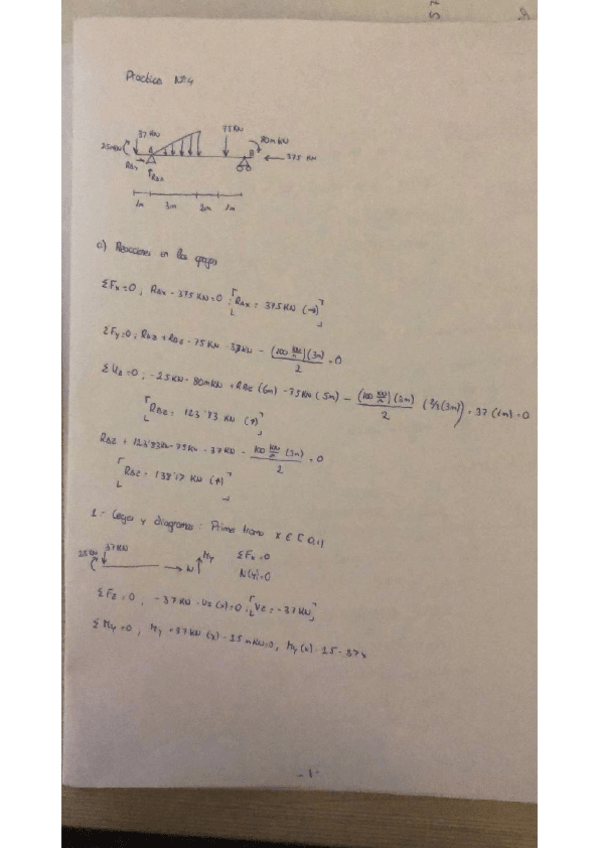 57
Practica Nº4
37 KN
75KN
80mKN
25mKN
A
B
375 KN
RAx
RAz
1m 3m 2m 1m
a) Reacciones en los apoyos
ΣFx=0; RAx - 375 KN=0; RAx = 375KN (→)
ΣFy=0; RAz + RBz - 75KN - 37KN - (100 KN/m)(3m)/2 = 0
ΣMA=0; -25KN - 80mKN + RBz (6m) - 75KN (5m) - (100 KN/m)(3m)/2 (2/3(3m)) + 37 (1m) = 0
RBz = 123'83 KN (↑)
RAz + 123'83KN - 75KN - 37KN - 100 KN/m (3m)/2 = 0
RAz = 138'17 KN (↑)
1.- Leyes y diagramas: Primer tramo x ∈ [0,1]
25KN 37KN
N
My
ΣFx=0
N(x)=0
ΣFz=0, -37KN - Vz(x)=0; Vz = -37KN
ΣMy=0; My + 37KN (x) - 25mKN=0; My(x) = 25 - 37x
- 1 -